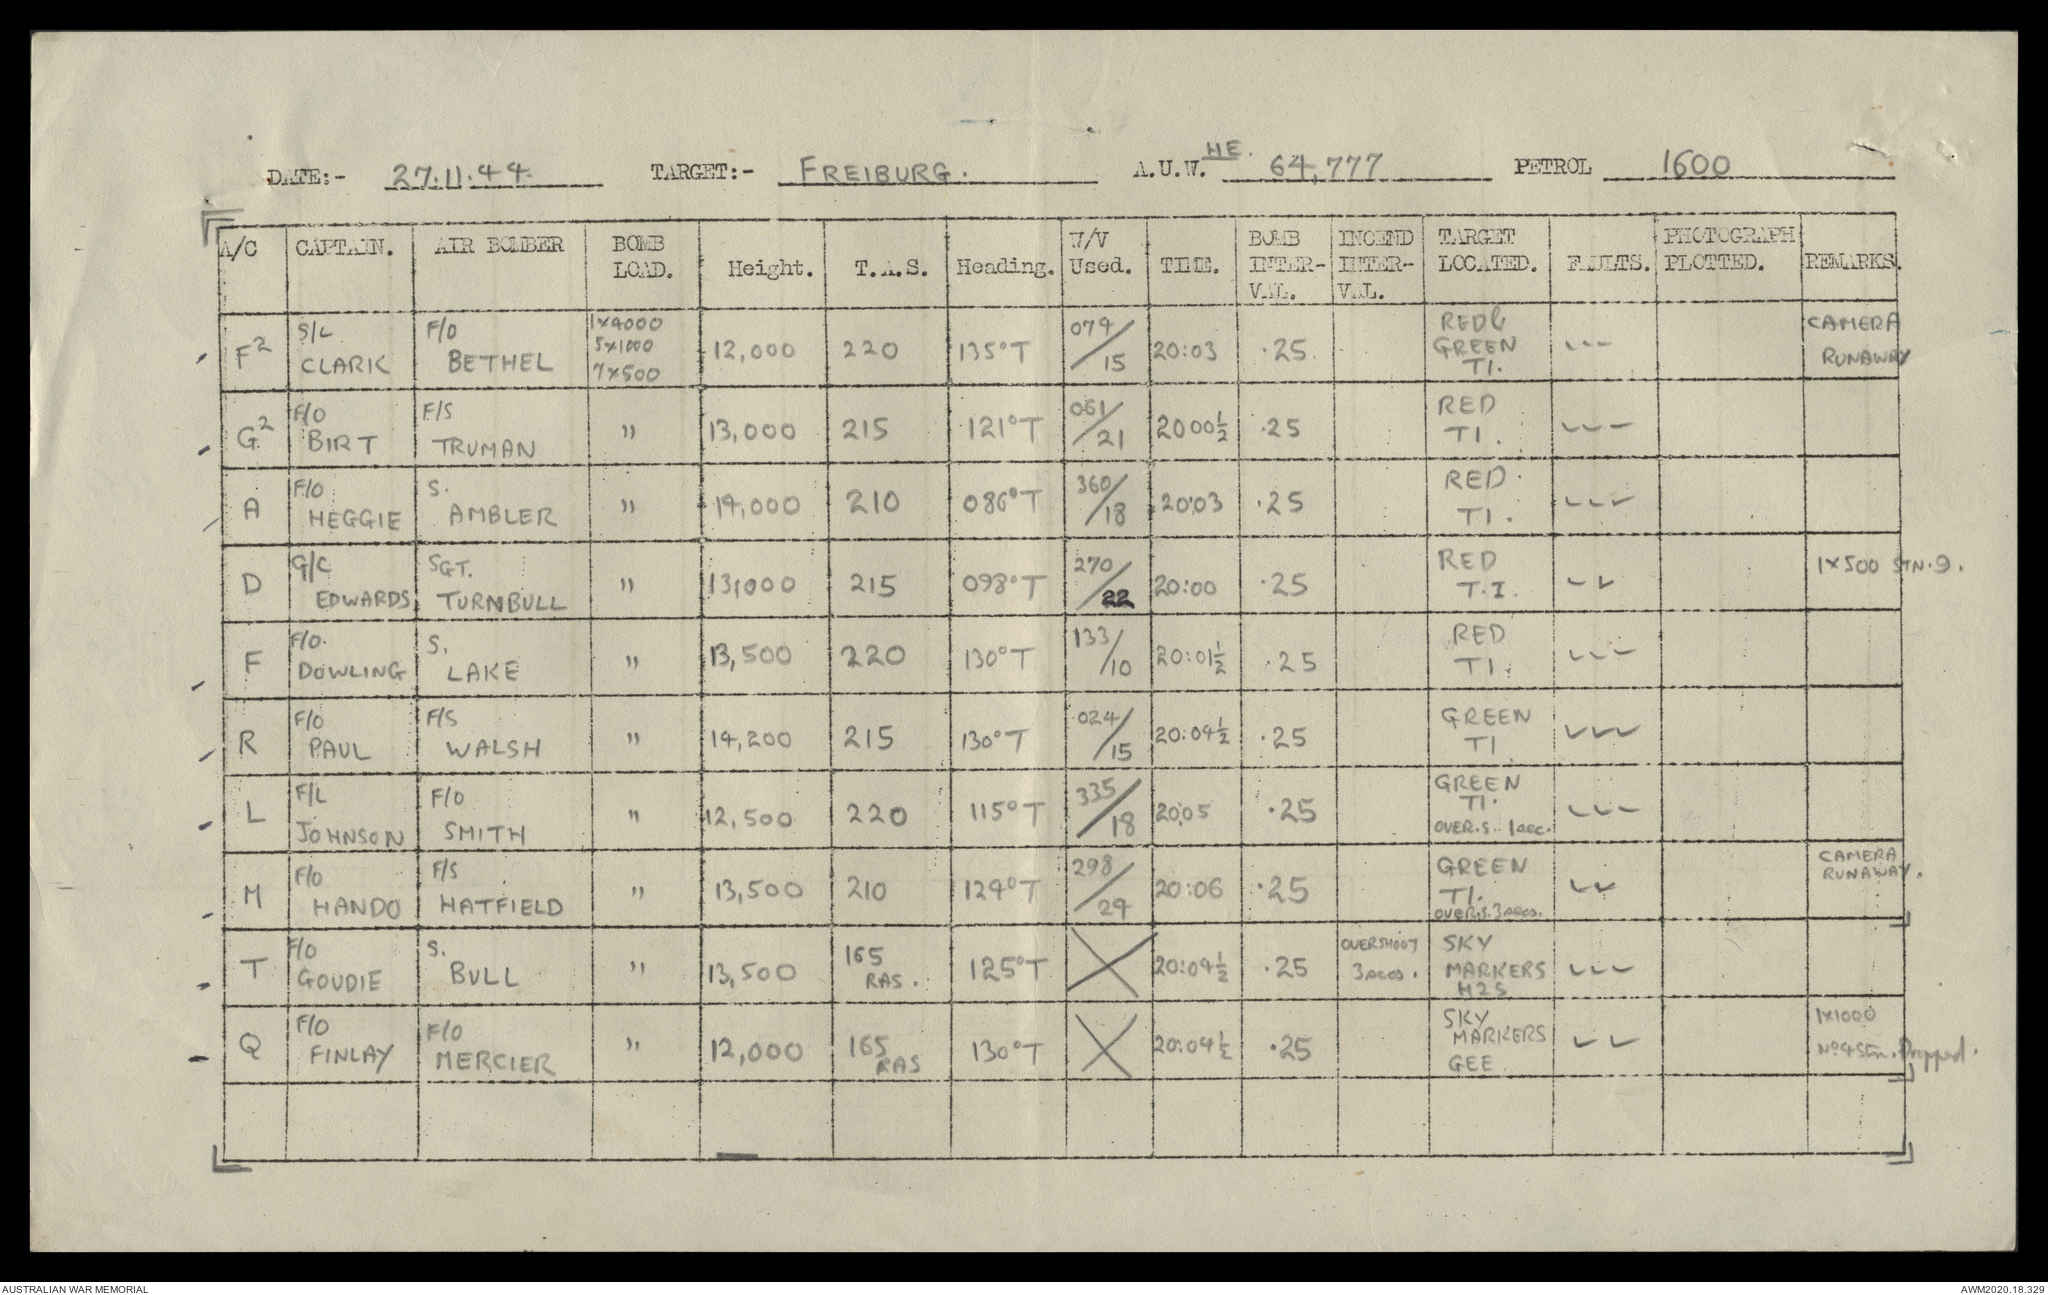 DATE:- 27.11.44. TARGET:- FREIBURG. A.U.W. ME. 64,777 PETROL 1600
A/C CAPTAIN. AIR BOMBER BOMB LOAD. Height. T.A.S. Heading. W/V Used. TIME. BOMB INTER-VAL. INCEND INTER-VAL. TARGET LOCATED. FAULTS. PHOTOGRAPH PLOTTED. REMARKS.
F2 S/L CLARK F/O BETHEL 1x4000 5x1000 7x500 12,000 220 135°T 079/15 20:03 .25 RED & GREEN TI. CAMERA RUNAWAY
G2 F/O BIRT F/S TRUMAN " 13,000 215 121°T 061/21 2000½ .25 RED TI.
A F/O HEGGIE S. AMBLER " 14,000 210 086°T 360/18 20:03 .25 RED TI.
D G/C EDWARDS SGT. TURNBULL " 13,000 215 098°T 270/22 20:00 .25 RED T.I. 1x500 STN.9.
F F/O. DOWLING S. LAKE " 13,500 220 130°T 133/10 20:01½ .25 RED TI.
R F/O PAUL F/S WALSH " 14,200 215 130°T 024/15 20:04½ .25 GREEN TI
L F/L JOHNSON F/O SMITH " 12,500 220 115°T 335/18 20:05 .25 GREEN TI. OVER.S. 1sec.
M F/O HANDO F/S HATFIELD " 13,500 210 124°T 298/24 20:06 .25 GREEN TI. OVER.S. 3secs. CAMERA RUNAWAY.
T F/O GOUDIE S. BULL " 13,500 165 RAS. 125°T 20:04½ .25 OVERSHOOT 3secs. SKY MARKERS H2S
Q F/O FINLAY F/O MERCIER " 12,000 165 RAS 130°T 20:04½ .25 SKY MARKERS GEE 1x1000 No 4 Stn. Dropped.
AUSTRALIAN WAR MEMORIAL AWM2020.18.329